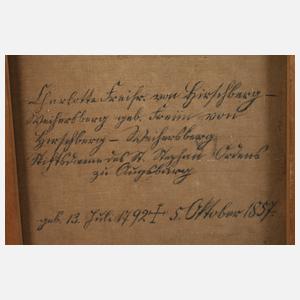 Charlotte Freifr. von Hirschberg –
Weihersberg geb. Freiin von
Hirschberg – Weihersberg
Stiftsdame des St. Stephan Ordens
zu Augsburg
geb. 13. Juli 1792 † 5. Oktober 1857.